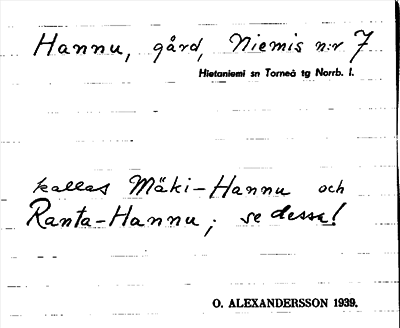 Hannu, gård, Niemis n:r 7
Hietaniemi sn Torneå tg Norrb. l.
kallas Mäki-Hannu och
Ranta-Hannu; se dessa!
O. ALEXANDERSSON 1939.